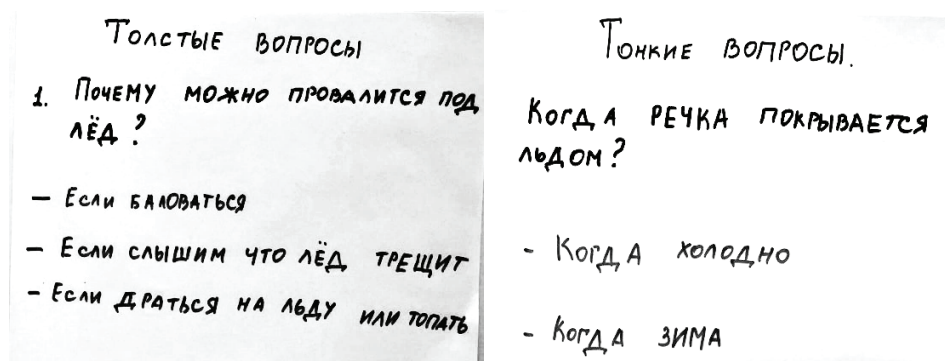 Толстые вопросы
1. Почему можно провалится под
лёд?
— Если баловаться
— Если слышим что лёд трещит
— Если драться на льду или топать
Тонкие вопросы.
Когда речка покрывается
льдом?
- Когда холодно
- Когда зима